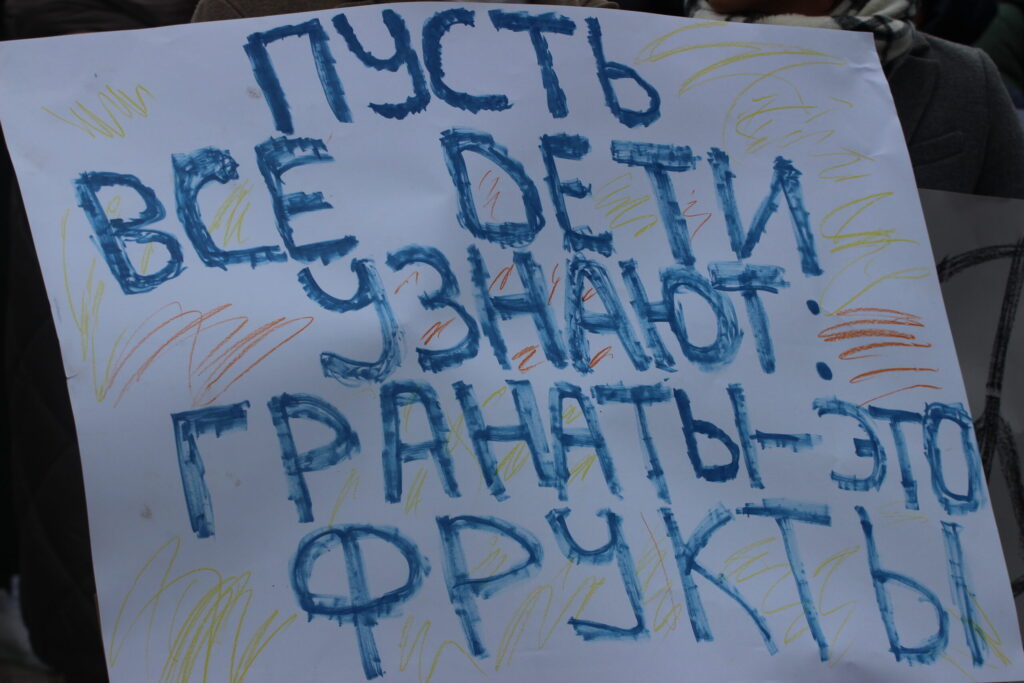 ПУСТЬ
ВСЕ ДЕТИ
УЗНАЮТ:
ГРАНАТЫ-ЭТО
ФРУКТЫ